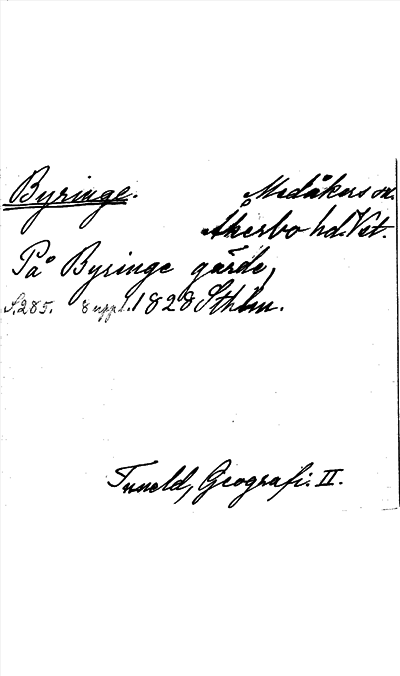 Byringe. Medåkers sn.
Åkerbo hd. Vst.
På Byringe gärde,
S. 285. 8 uppl. 1828 Sthlm.
Tuneld, Geografi. II.